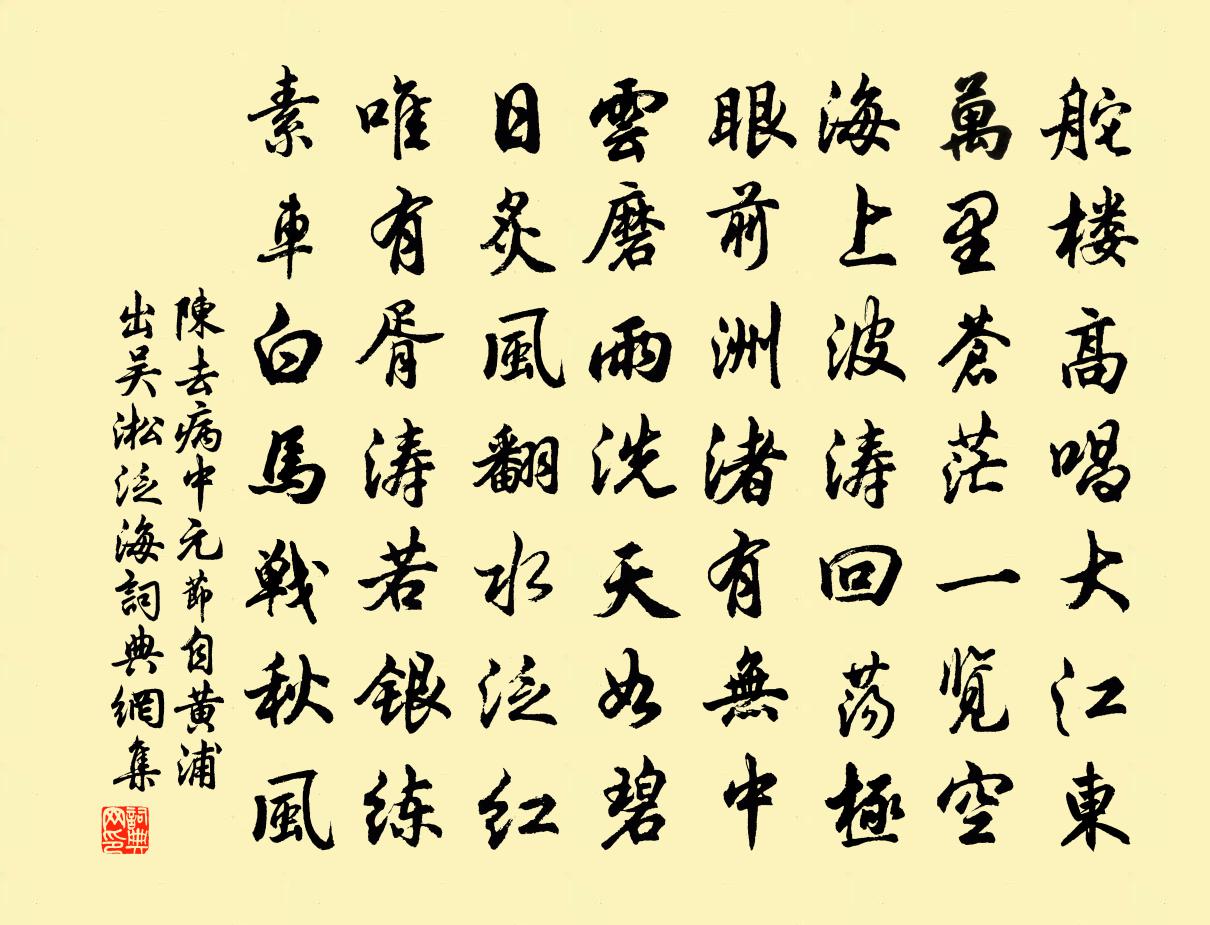 舵楼高唱大江東
萬里蒼茫一览空
海上波涛回荡極
眼前洲渚有無中
雲磨雨洗天如碧
日炙風翻水泛红
唯有胥涛若银练
素車白馬戦秋風
陳去病中元節自黄浦
出吴淞泛海詞典網集
詞典
网印